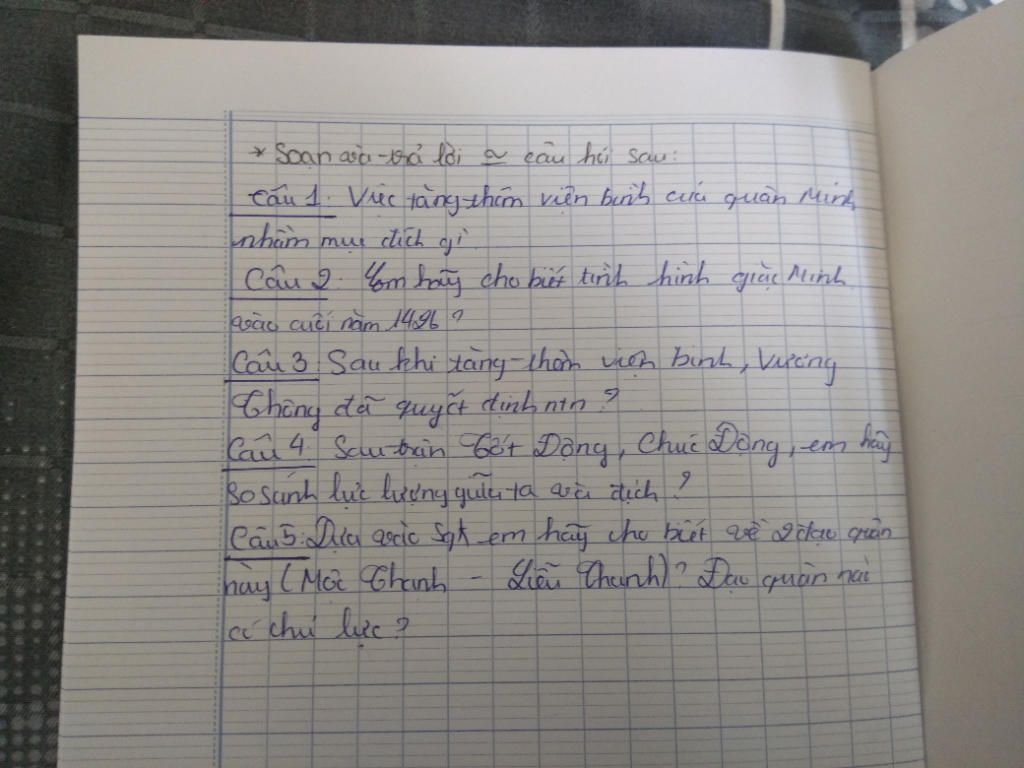 * Soạn và trả lời ~ câu hỏi sau:
Câu 1: Việc tăng thêm viện binh của quân Minh
nhằm mục đích gì
Câu 2: Em hãy cho biết tình hình giặc Minh
vào cuối năm 1426?
Câu 3: Sau khi tăng thêm viện binh, Vương
Thông đã quyết định ntn?
Câu 4: Sau trận Tốt Động, Chúc Động, em hãy
so sánh lực lượng giữa ta và địch?
Câu 5: Dựa vào Sgk em hãy cho biết về 2 đạo quân
này (Mộc Thạnh - Liễu Thăng)? Đạo quân nào
là chủ lực?